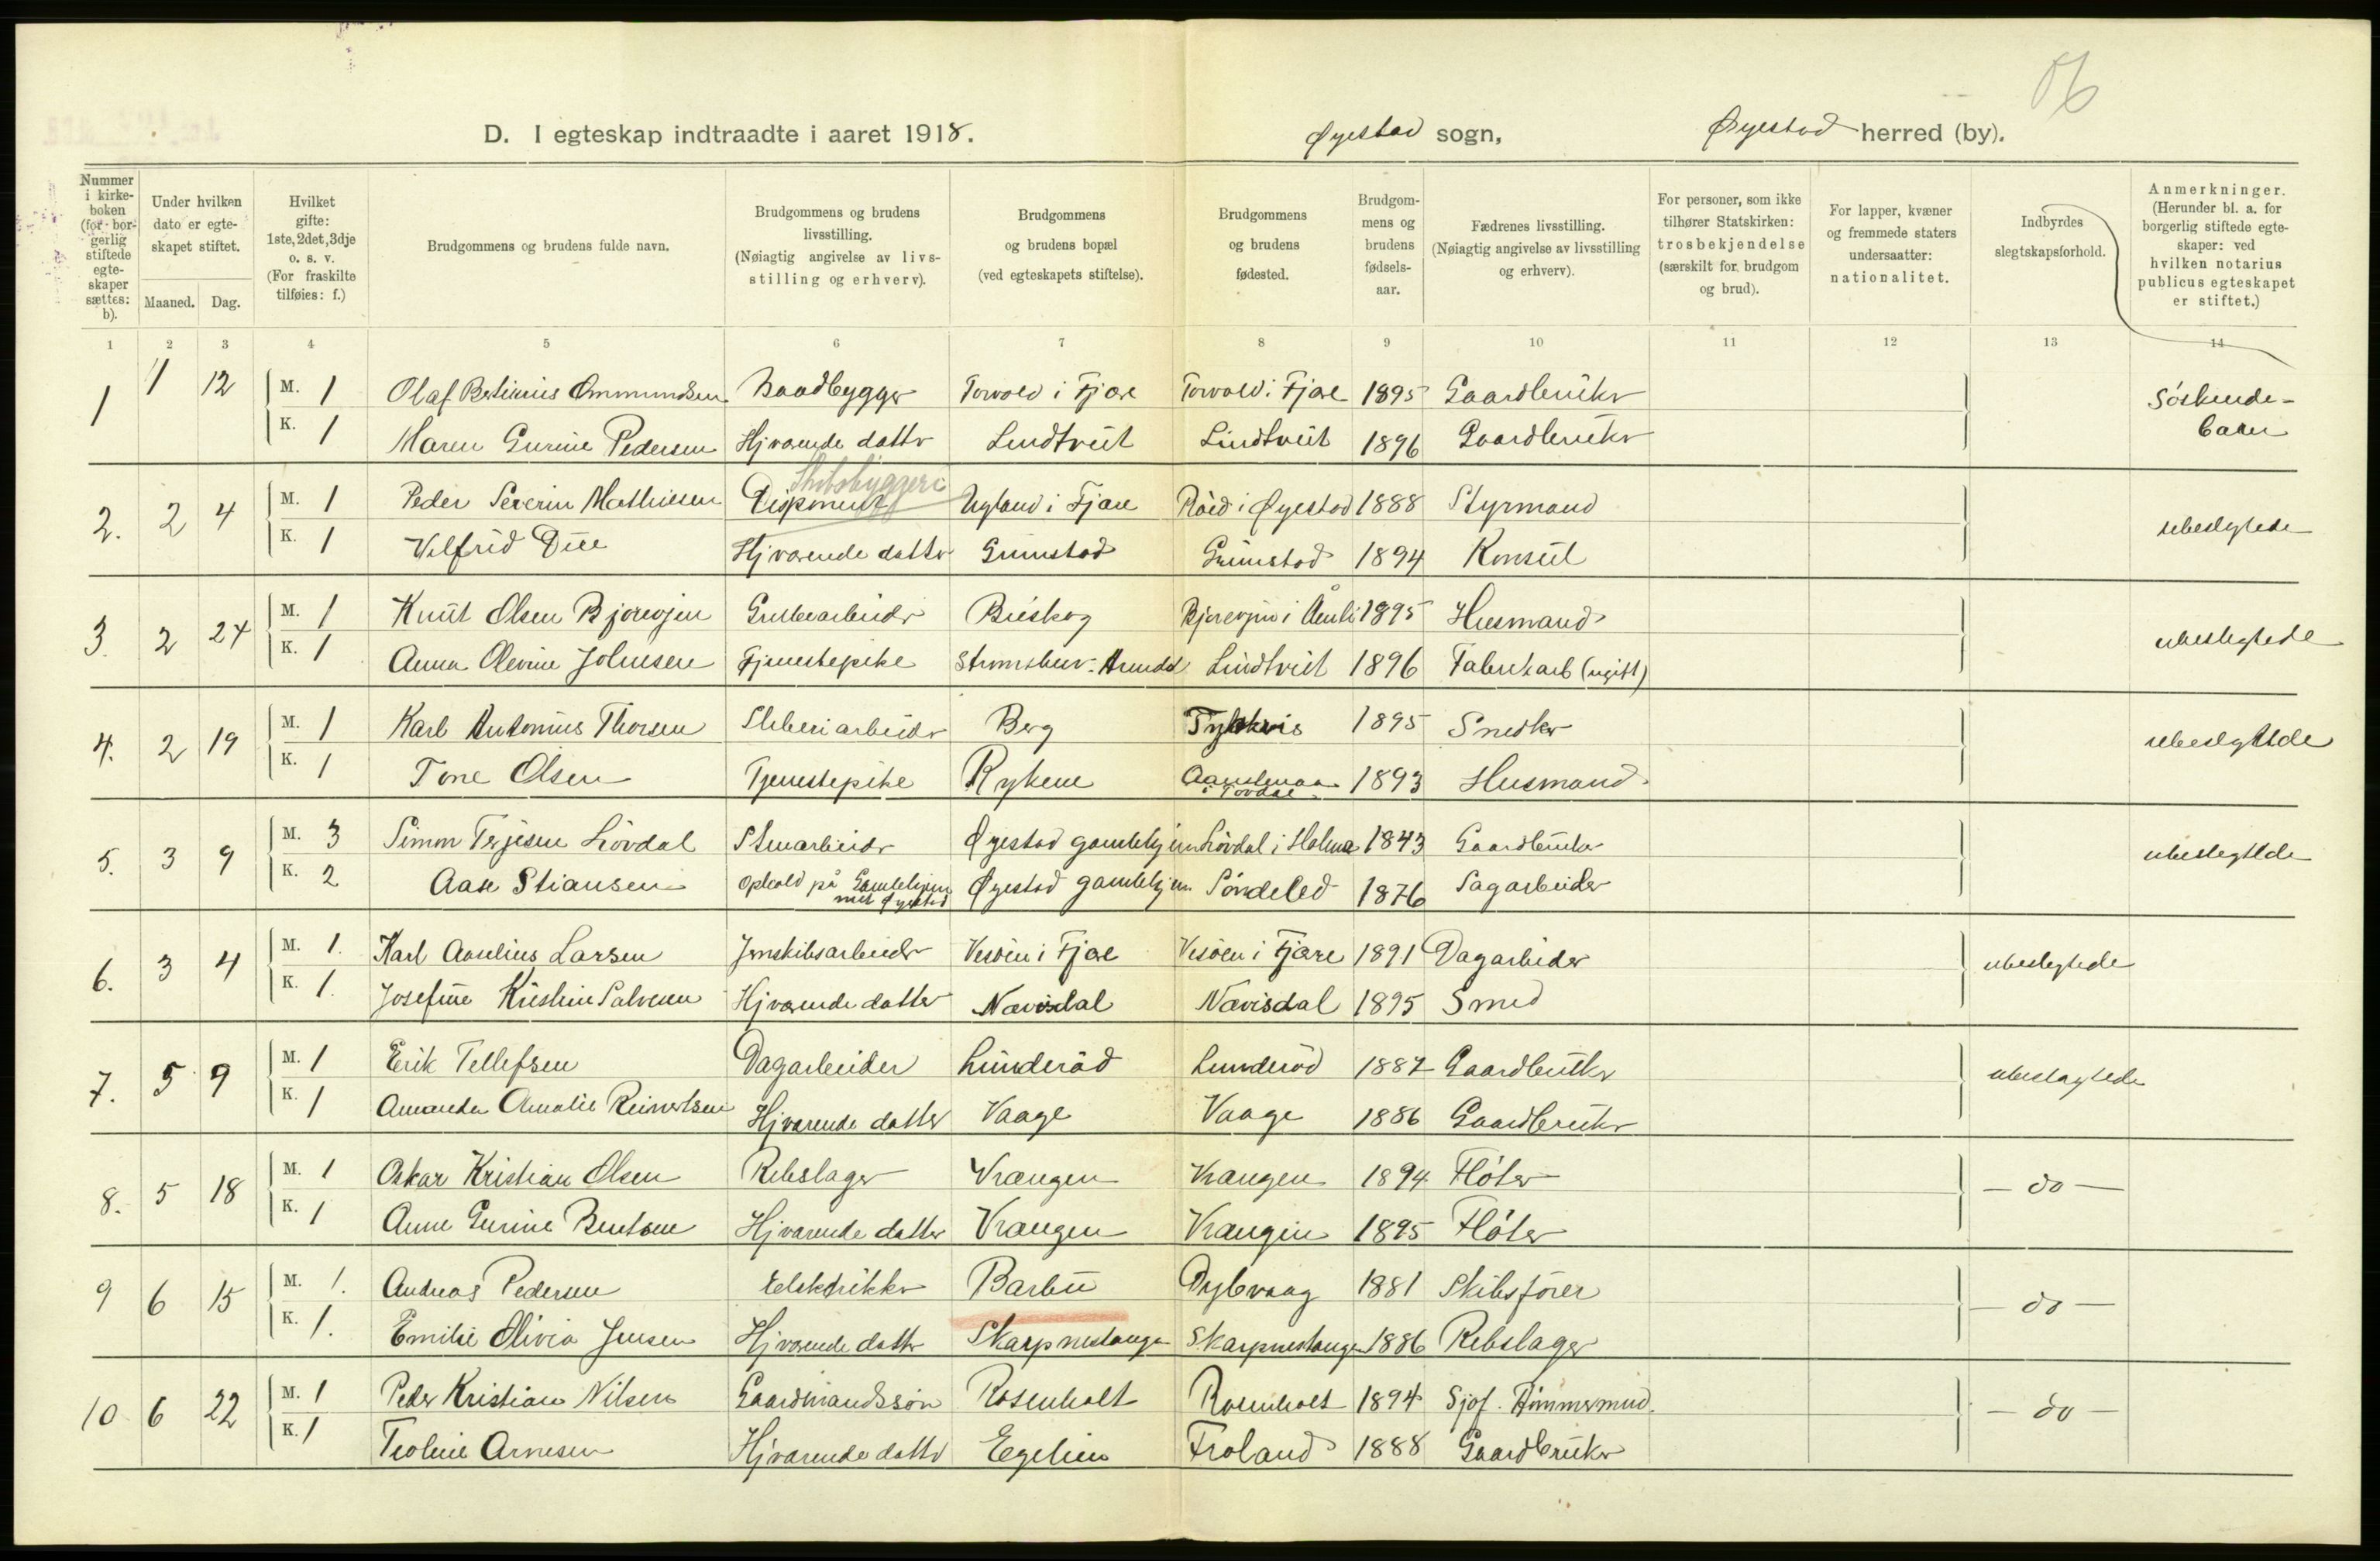 D. I egteskap indtraadte i aaret 1918. Øyestad sogn, Øyestad herred (by).
Nummer i kirke-boken (for bor-gerlig stiftede egte-skaper sættes: b).
Under hvilken dato er egte-skapet stiftet.
Maaned. Dag.
Hvilket gifte: 1ste, 2det, 3dje o. s. v. (For fraskilte tilføies: f.)
Brudgommens og brudens fulde navn.
Brudgommens og brudens livsstilling. (Nøiagtig angivelse av livs-stilling og erhverv).
Brudgommens og brudens bopæl (ved egteskapets stiftelse).
Brudgommens og brudens fødested.
Brudgom-mens og brudens fødsels-aar.
Fædrenes livsstilling. (Nøiagtig angivelse av livsstilling og erhverv).
For personer, som ikke tilhører Statskirken: trosbekjendelse (særskilt for brudgom og brud).
For lapper, kvæner og fremmede staters undersaatter: nationalitet.
Indbyrdes slegtskapsforhold.
Anmerkninger. (Herunder bl. a. for borgerlig stiftede egte-skaper: ved hvilken notarius publicus egteskapet er stiftet.)
1 2 3 4 5 6 7 8 9 10 11 12 13 14
1 1 12 M. 1 Olaf Bertinius Ommundsen Baadbygger Torvold i Fjære Torvold i Fjære 1895 Gaardbruker Søskende-
K. 1 Maren Gurine Pedersen Hjværende datter Lindtveit Lindtveit 1896 Gaardbruker barn
Skibsbyggeri
2. 2 4 M. 1 Peder Severin Mathiesen Disponent Ugland i Fjære Røed i Øyestad 1888 Styrmand ubeslegtede
K. 1 Vilfrid Due Hjværende datter Grimstad Grimstad 1894 Konsul
3. 2 24 M. 1 Knut Olsen Bjorvjen Grubearbeider Bieskog i Åmli 1895 Husmand ubeslegtede
K. 1 Anna Olevine Johnsen Tjenestepike Strømsbu Arendal Lindtveit 1896 Fabrikarb (ugift)
4. 2 19 M. 1 Karl Antonius Thorsen Sliberiarbeider Berg 1895 Snedker ubeslegtede
K. 1 Tone Olsen Tjenestepike Rykene i Tovdal 1893 Husmand
5. 3 9 M. 3 Simon Terjesen Løvdal Stenarbeider Øyestad gamlehjem Løvdal i Holma 1843 Gaardbruker ubeslegtede
K. 2 Aase Stiansen Ophold på Gamlehjem met Øyestad Øyestad gamlehjem Søndeled 1876 Sagarbeider
6. 3 4 M. 1. Karl Aanelius Larsen Jernskibsarbeider Vesøen i Fjære Vesøen i Fjære 1891 Dagarbeider ubeslegtede
K. 1. Josefine Kristine Salvesen Hjværende datter Nævisdal Nævisdal 1895 Smed
7. 5 9 M. 1 Erik Tellefsen Dagarbeider Lunderød Lunderød 1887 Gaardbruker ubeslegtede
K. 1 Amanda Amalie Reinertsen Hjværende datter Vaage Vaage 1886 Gaardbruker
8. 5 18 M. 1 Oskar Kristian Olsen Rebslager Vrængen Vrængen 1894 Fløter — do —
K. 1 Anne Gurine Bentsen Hjværende datter Vrængen Vrængen 1895 Fløter
9 6 15 M. 1. Andreas Pedersen Elektrikker Barbu Dybvaag 1881 Skibsfører — do —
K. 1. Emilie Olivia Jensen Hjværende datter Skarpnestangen Skarpnestangen 1886 Rebslager
10 6 22 M. 1 Peder Kristian Nilsen Gaardmandssøn Rosenholt Rosenholt 1894 Sjøf. Tømmermnd. — do —
K. 1 Teoline Arnesen Hjværende datter Egelien Froland 1888 Gaardbruker